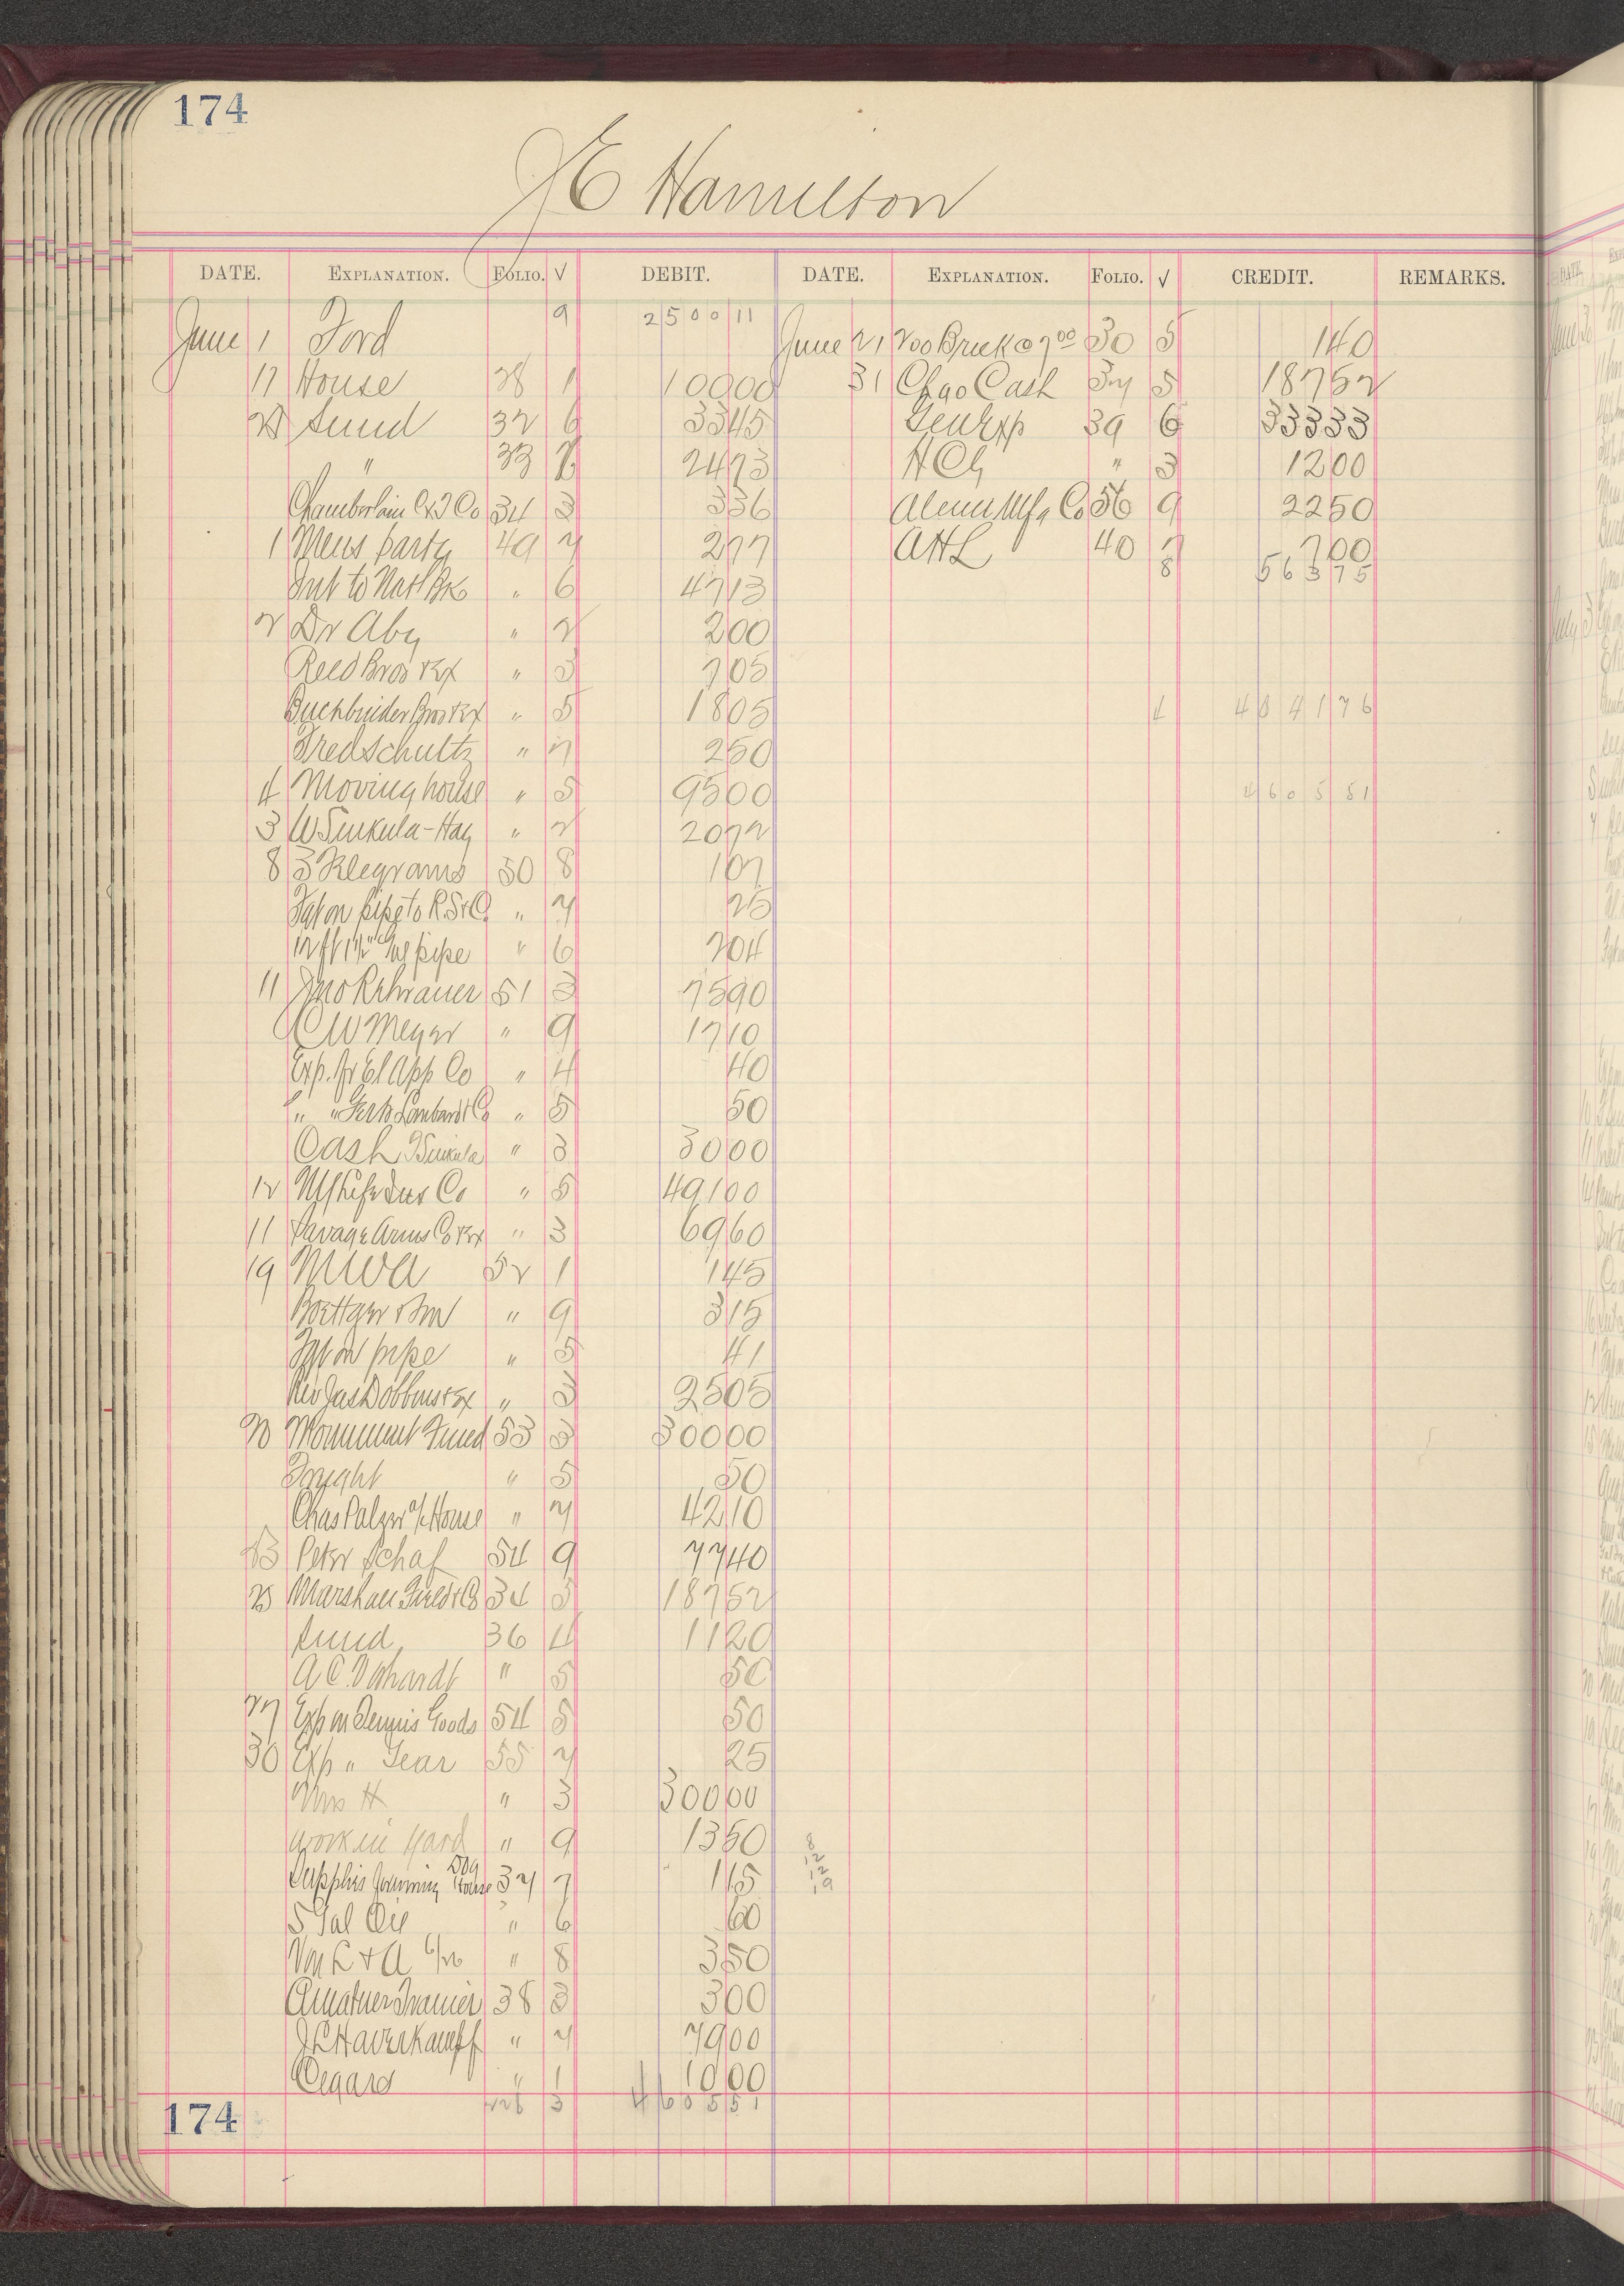 174
J E Hamilton
DATE. EXPLANATION. FOLIO. √ DEBIT. DATE. EXPLANATION. FOLIO. √ CREDIT. REMARKS.
June 1 Ford 9 2500 11 June 21 200 Brick @ 7 00 30 5 1 40
17 House 28 1 100 00 31 Chgo Cash 34 5 187 62
23 Sund 32 6 33 45 Gen Exp 39 6 333 33
" 33 24 73 HCH " 3 12 00
Chamberlain Co 34 3 3 36 Alemn Mfg Co 36 9 22 50
1 Mens party 49 7 2 77 AHL 40 7 7 00
8 563 75
Int to Natl Bk " 6 47 13
2 Dr Aby " 2 2 00
Reed Bros " 3 7 05
Buchbinder Bros " 5 18 05 4 4041 76
Fred Schultz " 7 2 50
4 Moving house " 5 95 00 4605 51
3 W Sinkula - Hay " 2 20 72
8 3 Telegrams 50 8 1 07
Frt on pipe to " 7 25
12 ft 1½" Gal pipe " 6 2 04
11 Jno Rohrauer 51 3 75 90
C W Meyer " 9 17 10
Exp. fr El App Co " 4 40
" " Lombard & Co " 5 50
Cash Sinkula " 3 30 00
12 Co " 5 491 00
11 Savage Arms Co " 3 69 60
19 MWA 52 1 1 45
Boettger & Son " 9 3 15
Frt on pipe " 5 41
Rev Jas Dobbins " 3 25 05
20 Monument Fund 53 3 300 00
Freight " 5 50
Chas Palzer a/c House " 7 42 10
23 Peter Schaf 54 9 77 40
23 Marshall Field & Co 34 5 187 62
Sund 36 4 11 20
A C " 5 50
27 Exp on Tennis Goods 54 5 50
30 Exp " Gear 55 7 25
Mrs H " 3 300 00
Work in yard " 9 13 50
Supplies Dog House 37 7 1 15
5 Gal Oil " 6 60
" 8 3 50
Amateur Trainer 38 3 3 00
J C Haverkampf " 7 79 00
Cigars " 1 10 00
3 4605 51
8
12
12
19
174